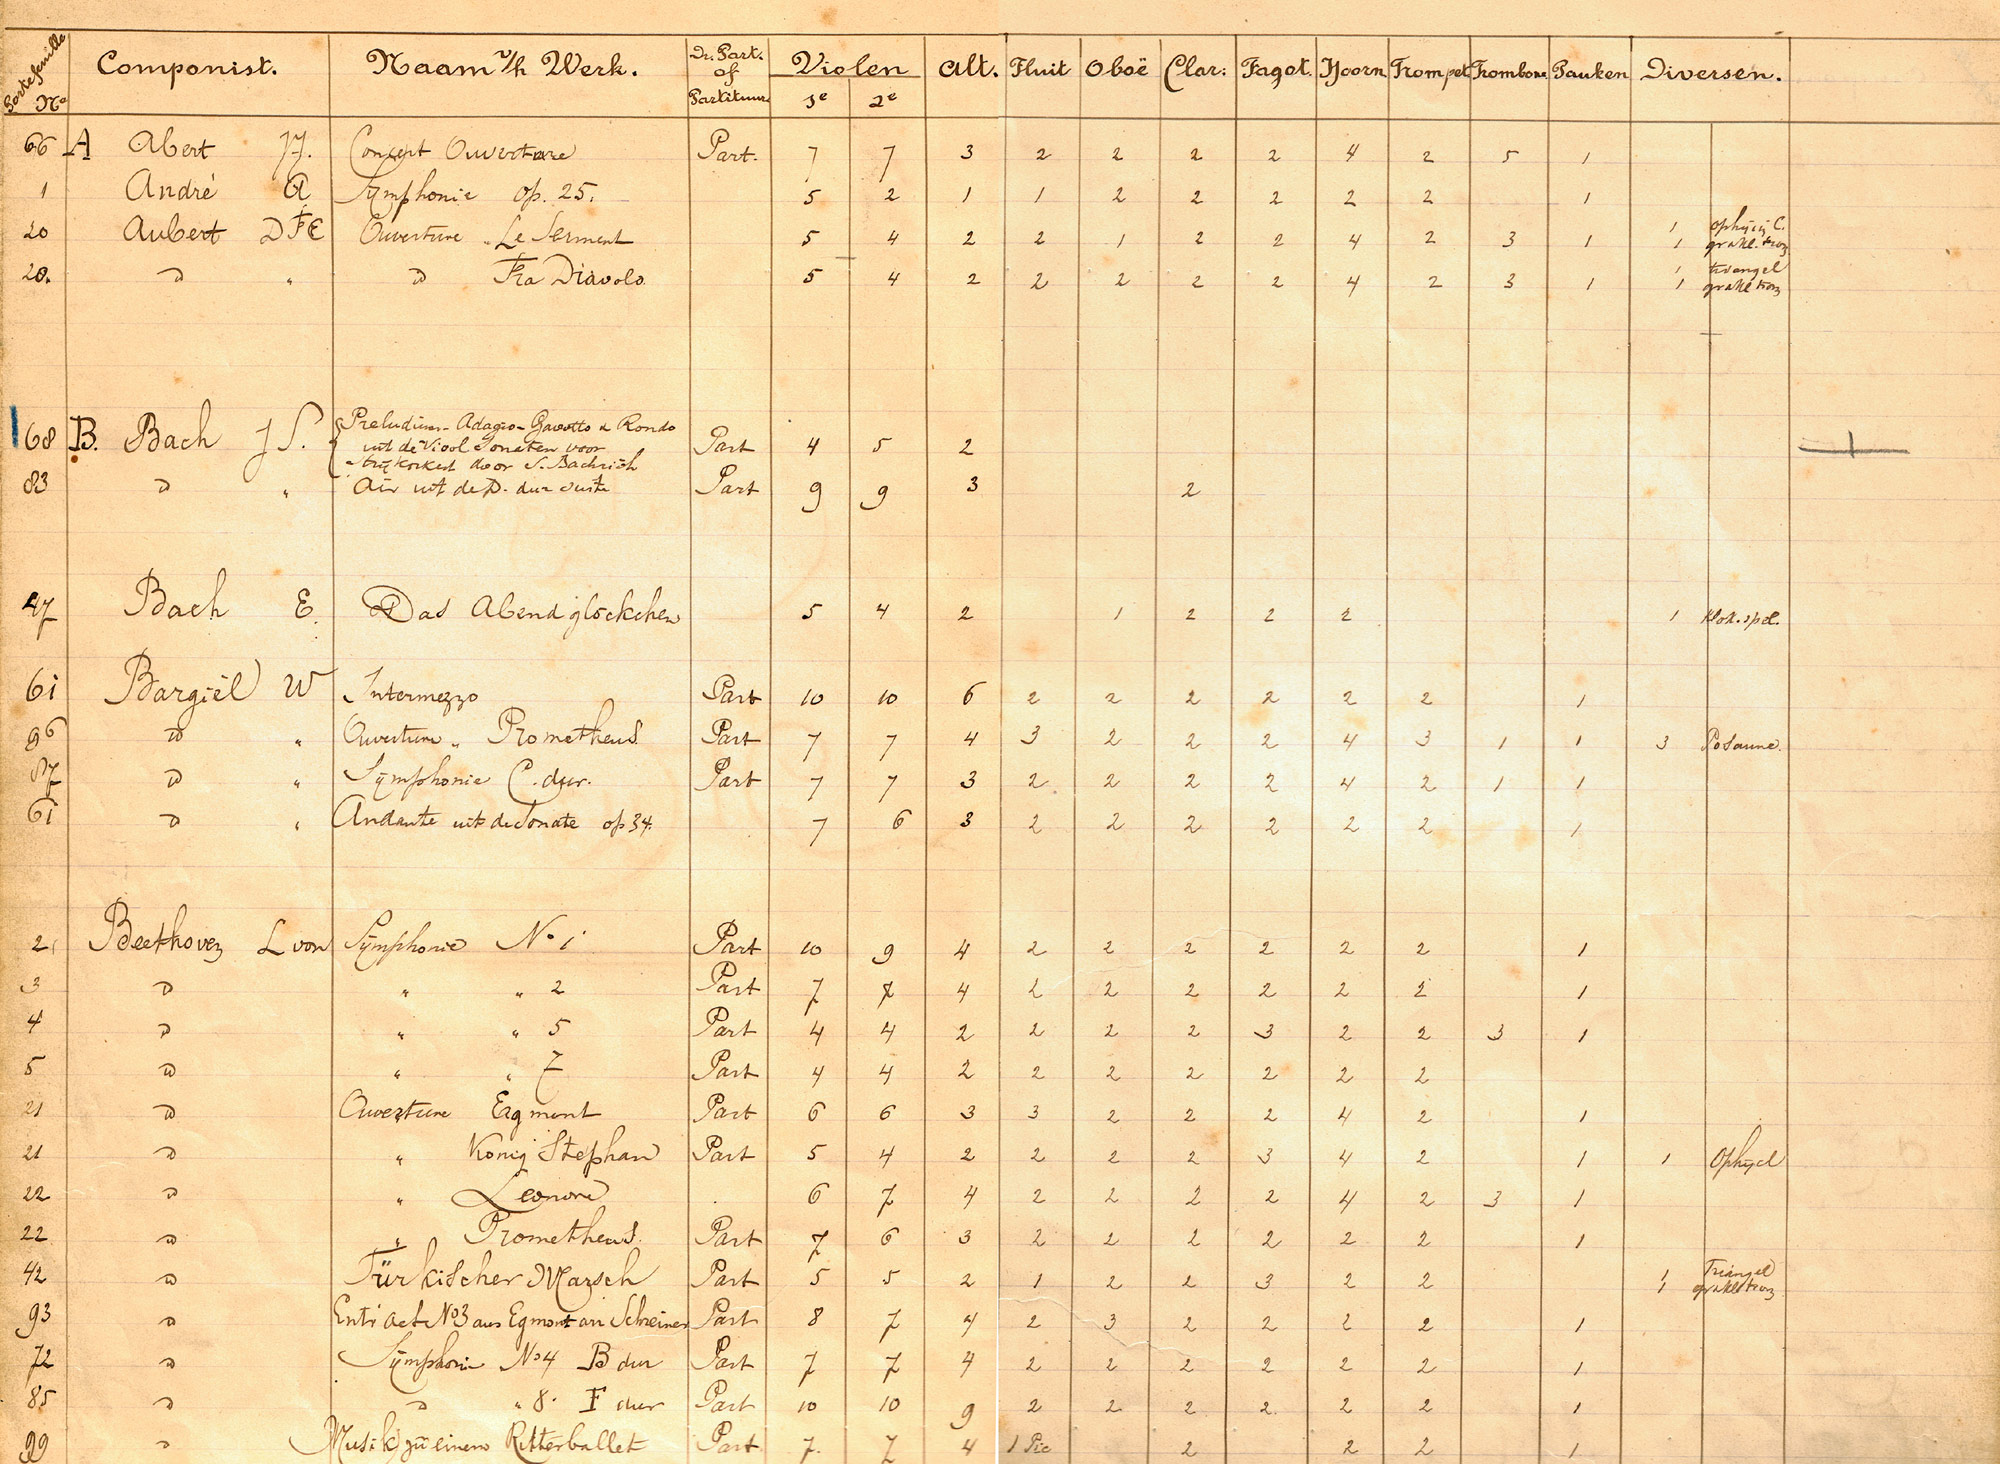 Portefeuille No Componist. Naam v/h Werk. Dr. Part. of Partituur Violen 1e 2e Alt. Fluit Oboë Clar: Fagot. Hoorn Trompet Trombone Pauken Diversen.
66 A Abert JJ. Concert Ouverture Part. 7 7 3 2 2 2 2 4 2 5 1
1 André A Symphonie op. 25. 5 2 1 1 2 2 2 2 2 1
20 Aubert D F E Ouverture " Le Serment 5 4 2 2 1 2 2 4 2 3 1 1 1
20. " Fra Diavolo. 5 4 2 2 2 2 2 4 2 3 1 1 triangel 1
68 B. Bach J S. Preludium - Adagio - Gavotto & Rondo
uit de Viool Sonaten voor Part 4 5 2
strijkorkest door S. Bachrich
83 " Air uit de D. dur suite Part 9 9 3 2
47 Bach E. Das Abendglöckchen 5 4 2 1 2 2 2 1 klok.spel.
61 Bargiël W Intermezzo Part 10 10 6 2 2 2 2 2 2 1
96 " Ouverture " Prometheus. Part 7 7 4 3 2 2 2 4 3 1 1 3 Posaune.
87 " Symphonie C. dur. Part 7 7 3 2 2 2 2 4 2 1 1
61 " Andante uit de Sonate op 34. 7 6 3 2 2 2 2 2 2 1
2 Beethoven L von Symphonie No 1 Part 10 9 4 2 2 2 2 2 2 1
3 " " 2 Part 7 7 4 2 2 2 2 2 2 1
4 " " 5 Part 4 4 2 2 2 2 3 2 2 3 1
5 " " 7 Part 4 4 2 2 2 2 2 2 2
21 Ouverture Egmont Part 6 6 3 3 2 2 2 4 2 1
21 " König Stephan Part 5 4 2 2 2 2 3 4 2 1 1 Ophycl
22 " Leonore 6 7 4 2 2 2 2 4 2 3 1
22 " Prometheus. Part 7 6 3 2 2 2 2 2 2 1
42 Türkischer Marsch Part 5 5 2 1 2 2 3 2 2 1 Triangel 1
93 Entr'act No3 aus Egmont arr Schreiner Part 8 7 4 2 3 2 2 2 2 1
72 Symphonie No 4 B dur Part 7 7 4 2 2 2 2 2 2 1
85 " 8. F dur Part 10 10 9 2 2 2 2 2 2 1
99 Musik zu einem Ritterballet Part 7. 7 4 1 Pic 2 2 2 1